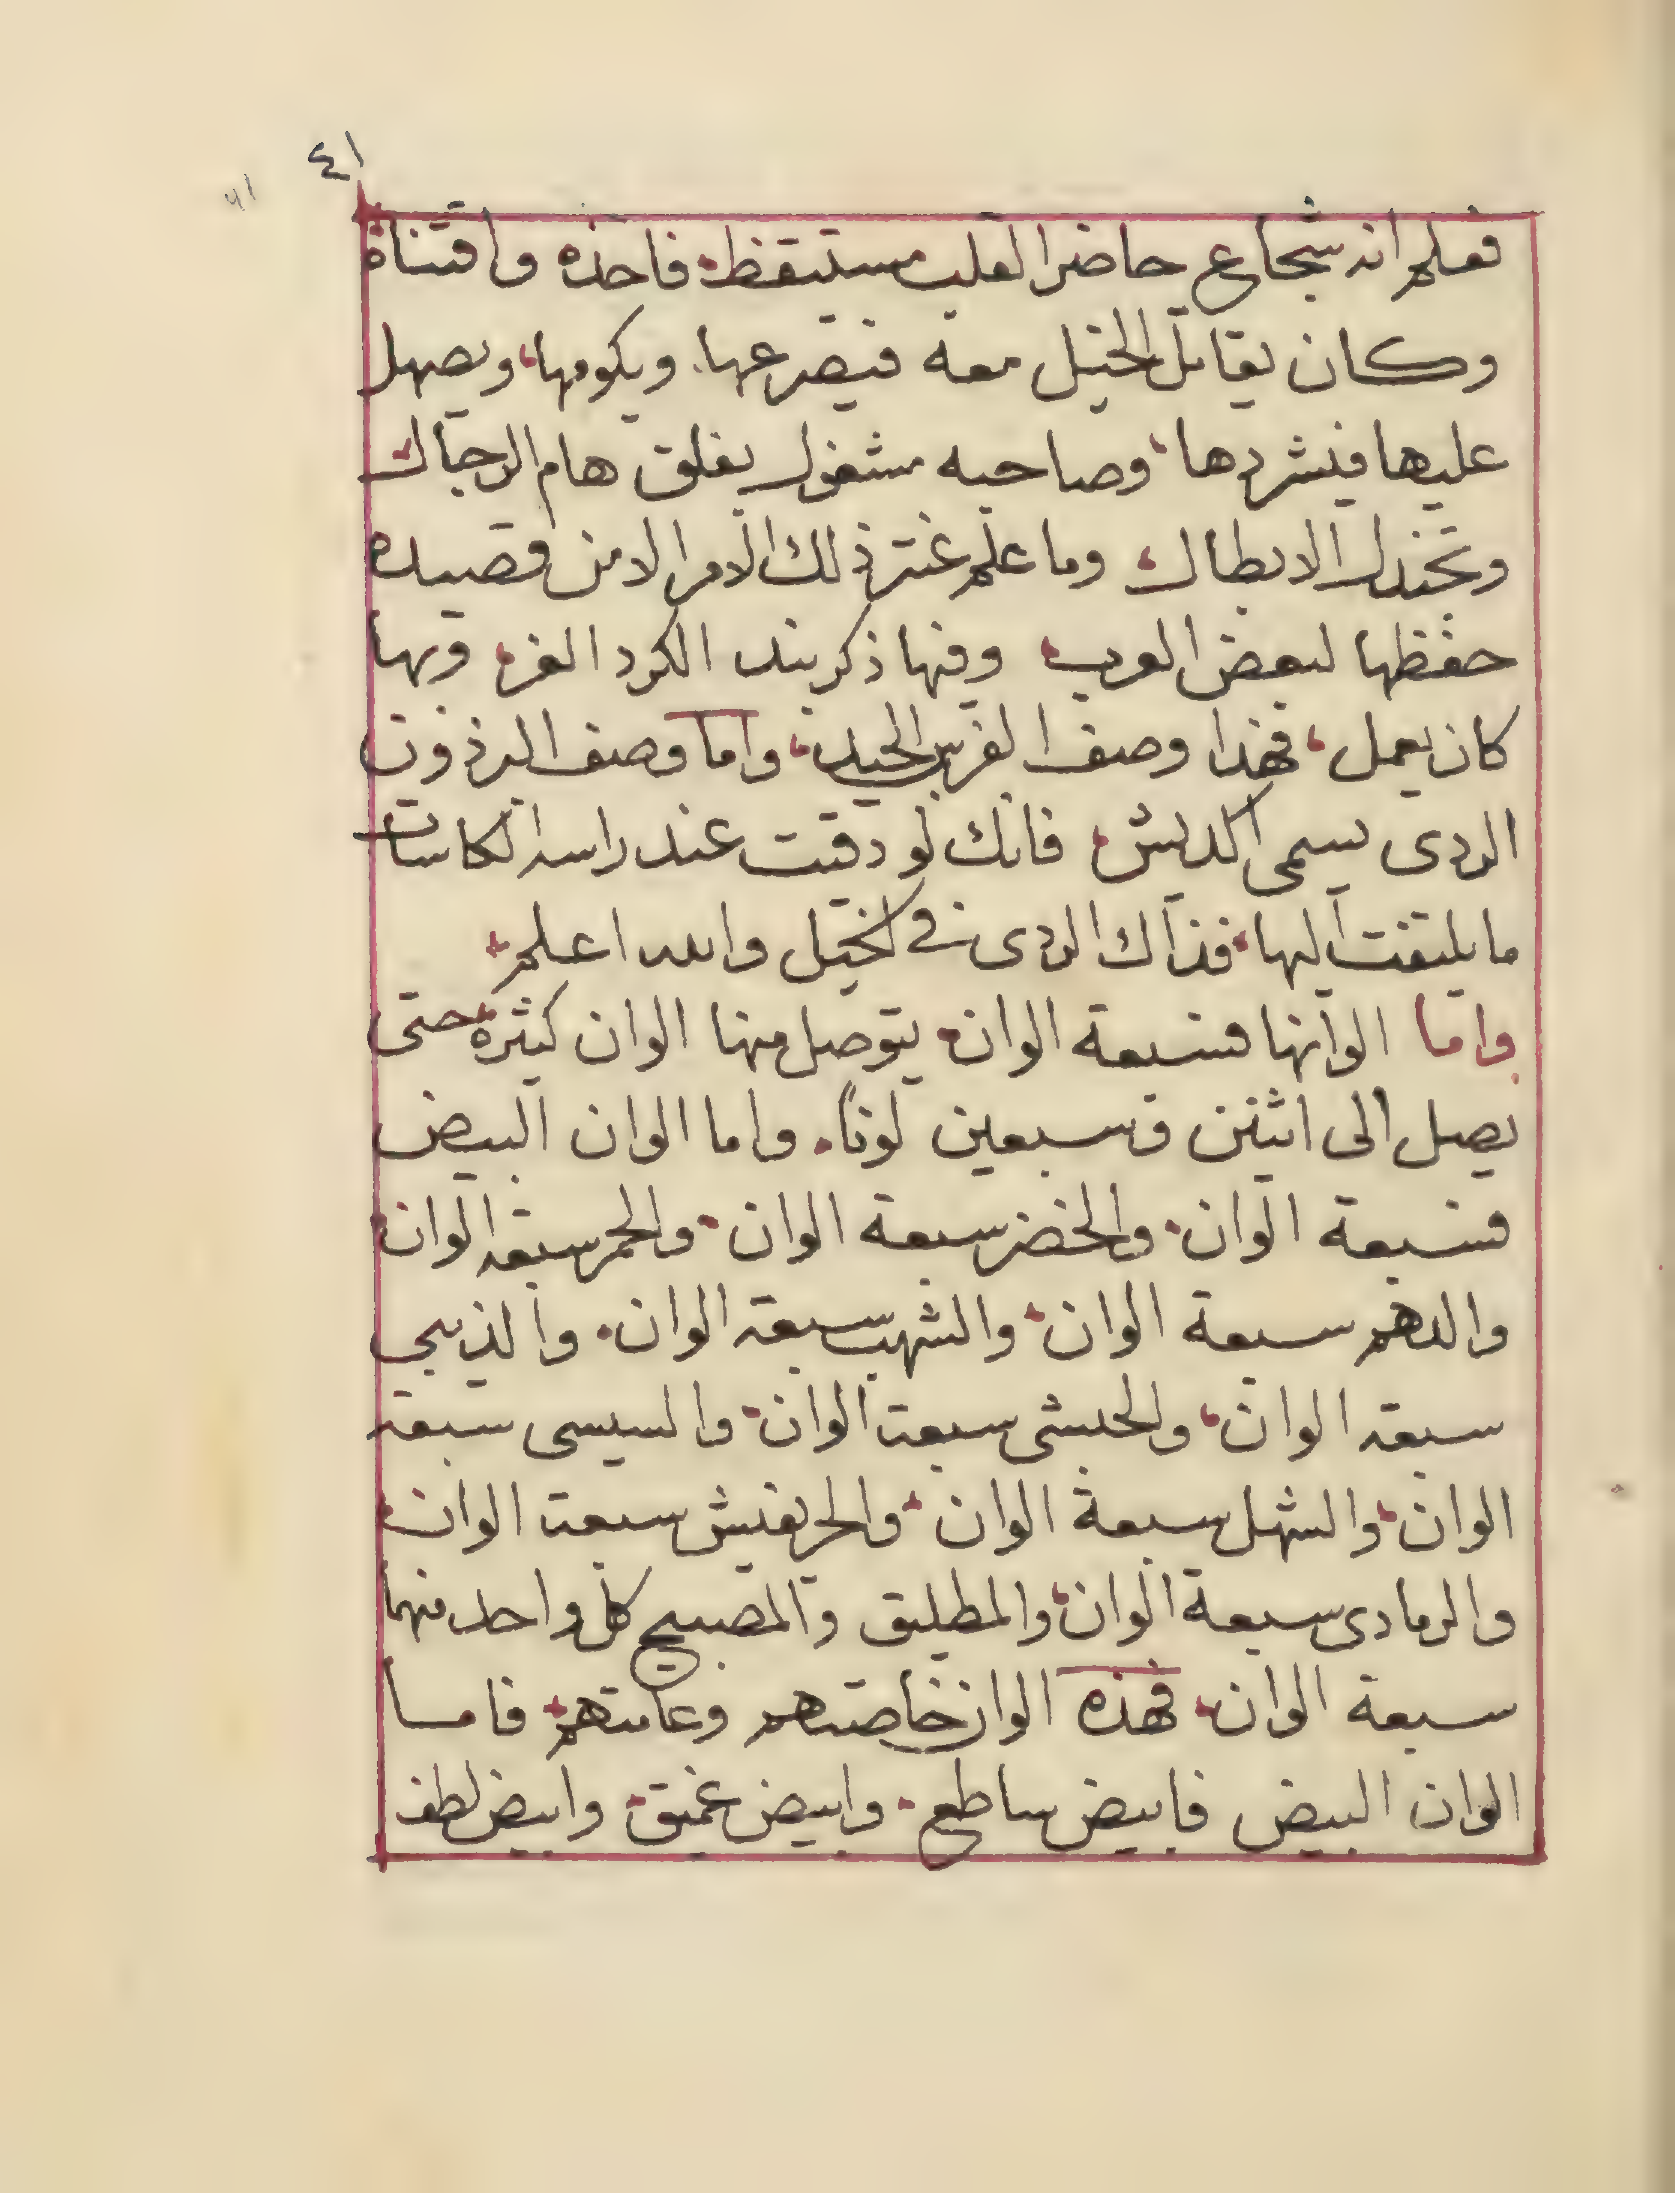 ٤١
٤١
فعلم انه شجاع حاضر القلب مستيقظ، فاخذه واقتناه
وكان يقاتل الخيل معه فيصرعها، ويكومها، ويصهل
عليها فيشردها، وصاحبه مشغول يفلق هام الرجال
وتجندل الابطال، وما علم عنتر ذلك الامر الا من قصيده
حفظها لبعض العرب، وفيها ذكر بند الكرد الغر، وبها
كان يعمل، فهذا وصف الفرس الجيد، واما وصف البرذون
الردى يسمى اكديش، فانك لو دقيت عند راسه الكاسات
ما يلتفت اليها، فذاك الردى في الخيل والله اعلم،
واما الوانها فسبعة الوان، يتوصل منها الوان كثيرة، حتى
يصل الى اثنين وسبعين لونًا، واما الوان البيض
فسبعة الوان، والخضر سبعة الوان، والحمر سبعة الوان
والدهم سبعة الوان، والشهب سبعة الوان، والذيبي
سبعة الوان، والحبشى سبعة الوان، والسيسى سبعة
الوان، والشهل سبعة الوان، والحريفيش سبعة الوان،
والرمادى سبعة الوان، والمطليق والمصبيح كل واحد منهما
سبعة الوان، فهذه الوان خاصتهم وعامتهم، فاما
الوان البيض فابيض ساطع، وابيض غميق، وابيض لطف